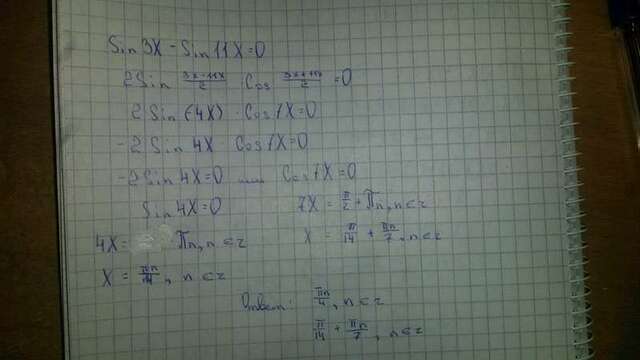 Sin 3x - Sin 11x = 0
2 Sin (3x-11x)/2 · Cos (3x+11x)/2 = 0
2 Sin (-4x) · Cos 7x = 0
-2 Sin 4x Cos 7x = 0
-2 Sin 4x = 0 или Cos 7x = 0
Sin 4x = 0 7x = π/2 + πn, n ∈ z
4x = πn, n ∈ z x = π/14 + πn/7, n ∈ z
x = πn/4, n ∈ z
Ответ: πn/4, n ∈ z
π/14 + πn/7, n ∈ z